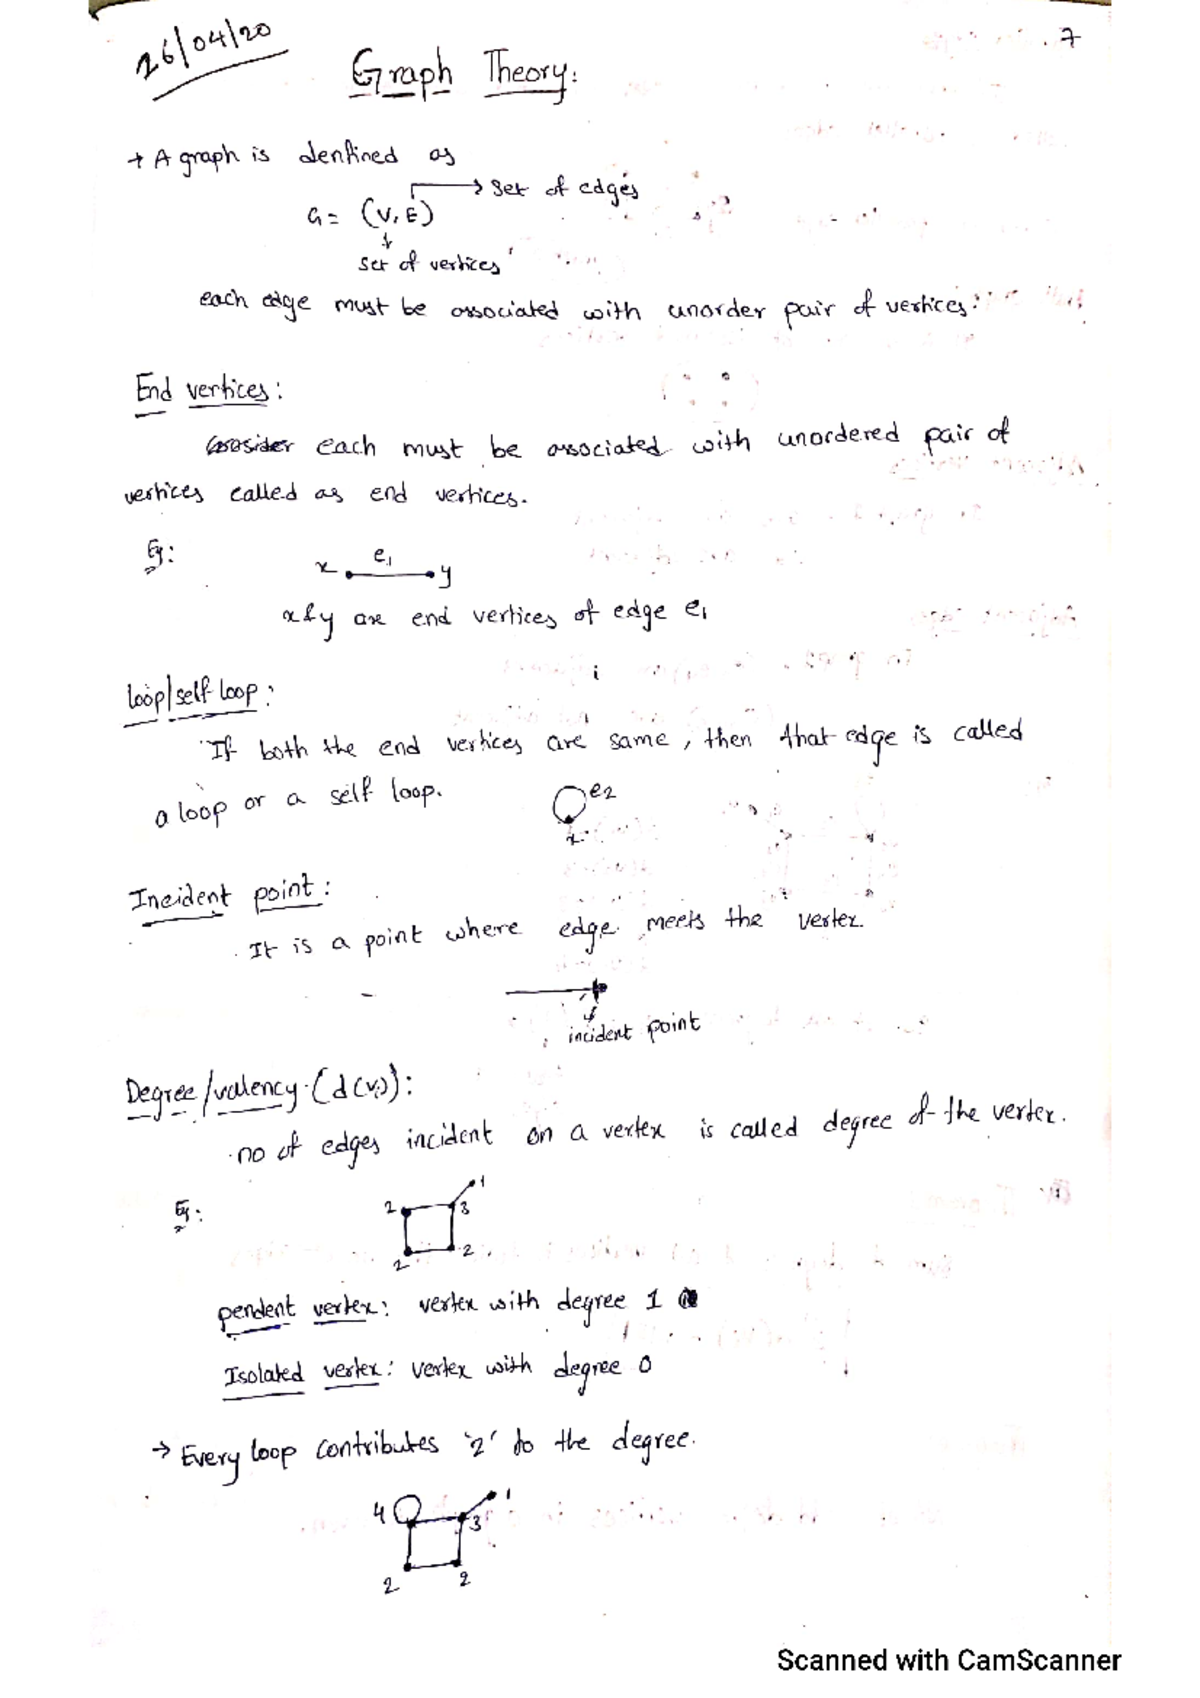 26/04/20
7
Graph Theory:
→ A graph is denfined as
→ set of edges
G = (V, E)
set of vertices
each edge must be associated with unorder pair of vertices.
End vertices:
Consider each must be associated with unordered pair of
vertices called as end vertices.
Eg:
x e1 y
x & y are end vertices of edge e1
loop/self loop:
If both the end vertices are same, then that edge is called
a loop or a self loop.
e2
x
Incident point:
It is a point where edge meets the vertex.
incident point
Degree/valency (d(vi)):
no of edges incident on a vertex is called degree of the vertex.
Eg:
1
2 3
2 2
pendent vertex: vertex with degree 1
Isolated vertex: vertex with degree 0
→ Every loop contributes '2' to the degree.
4 1
3
2 2
Scanned with CamScanner